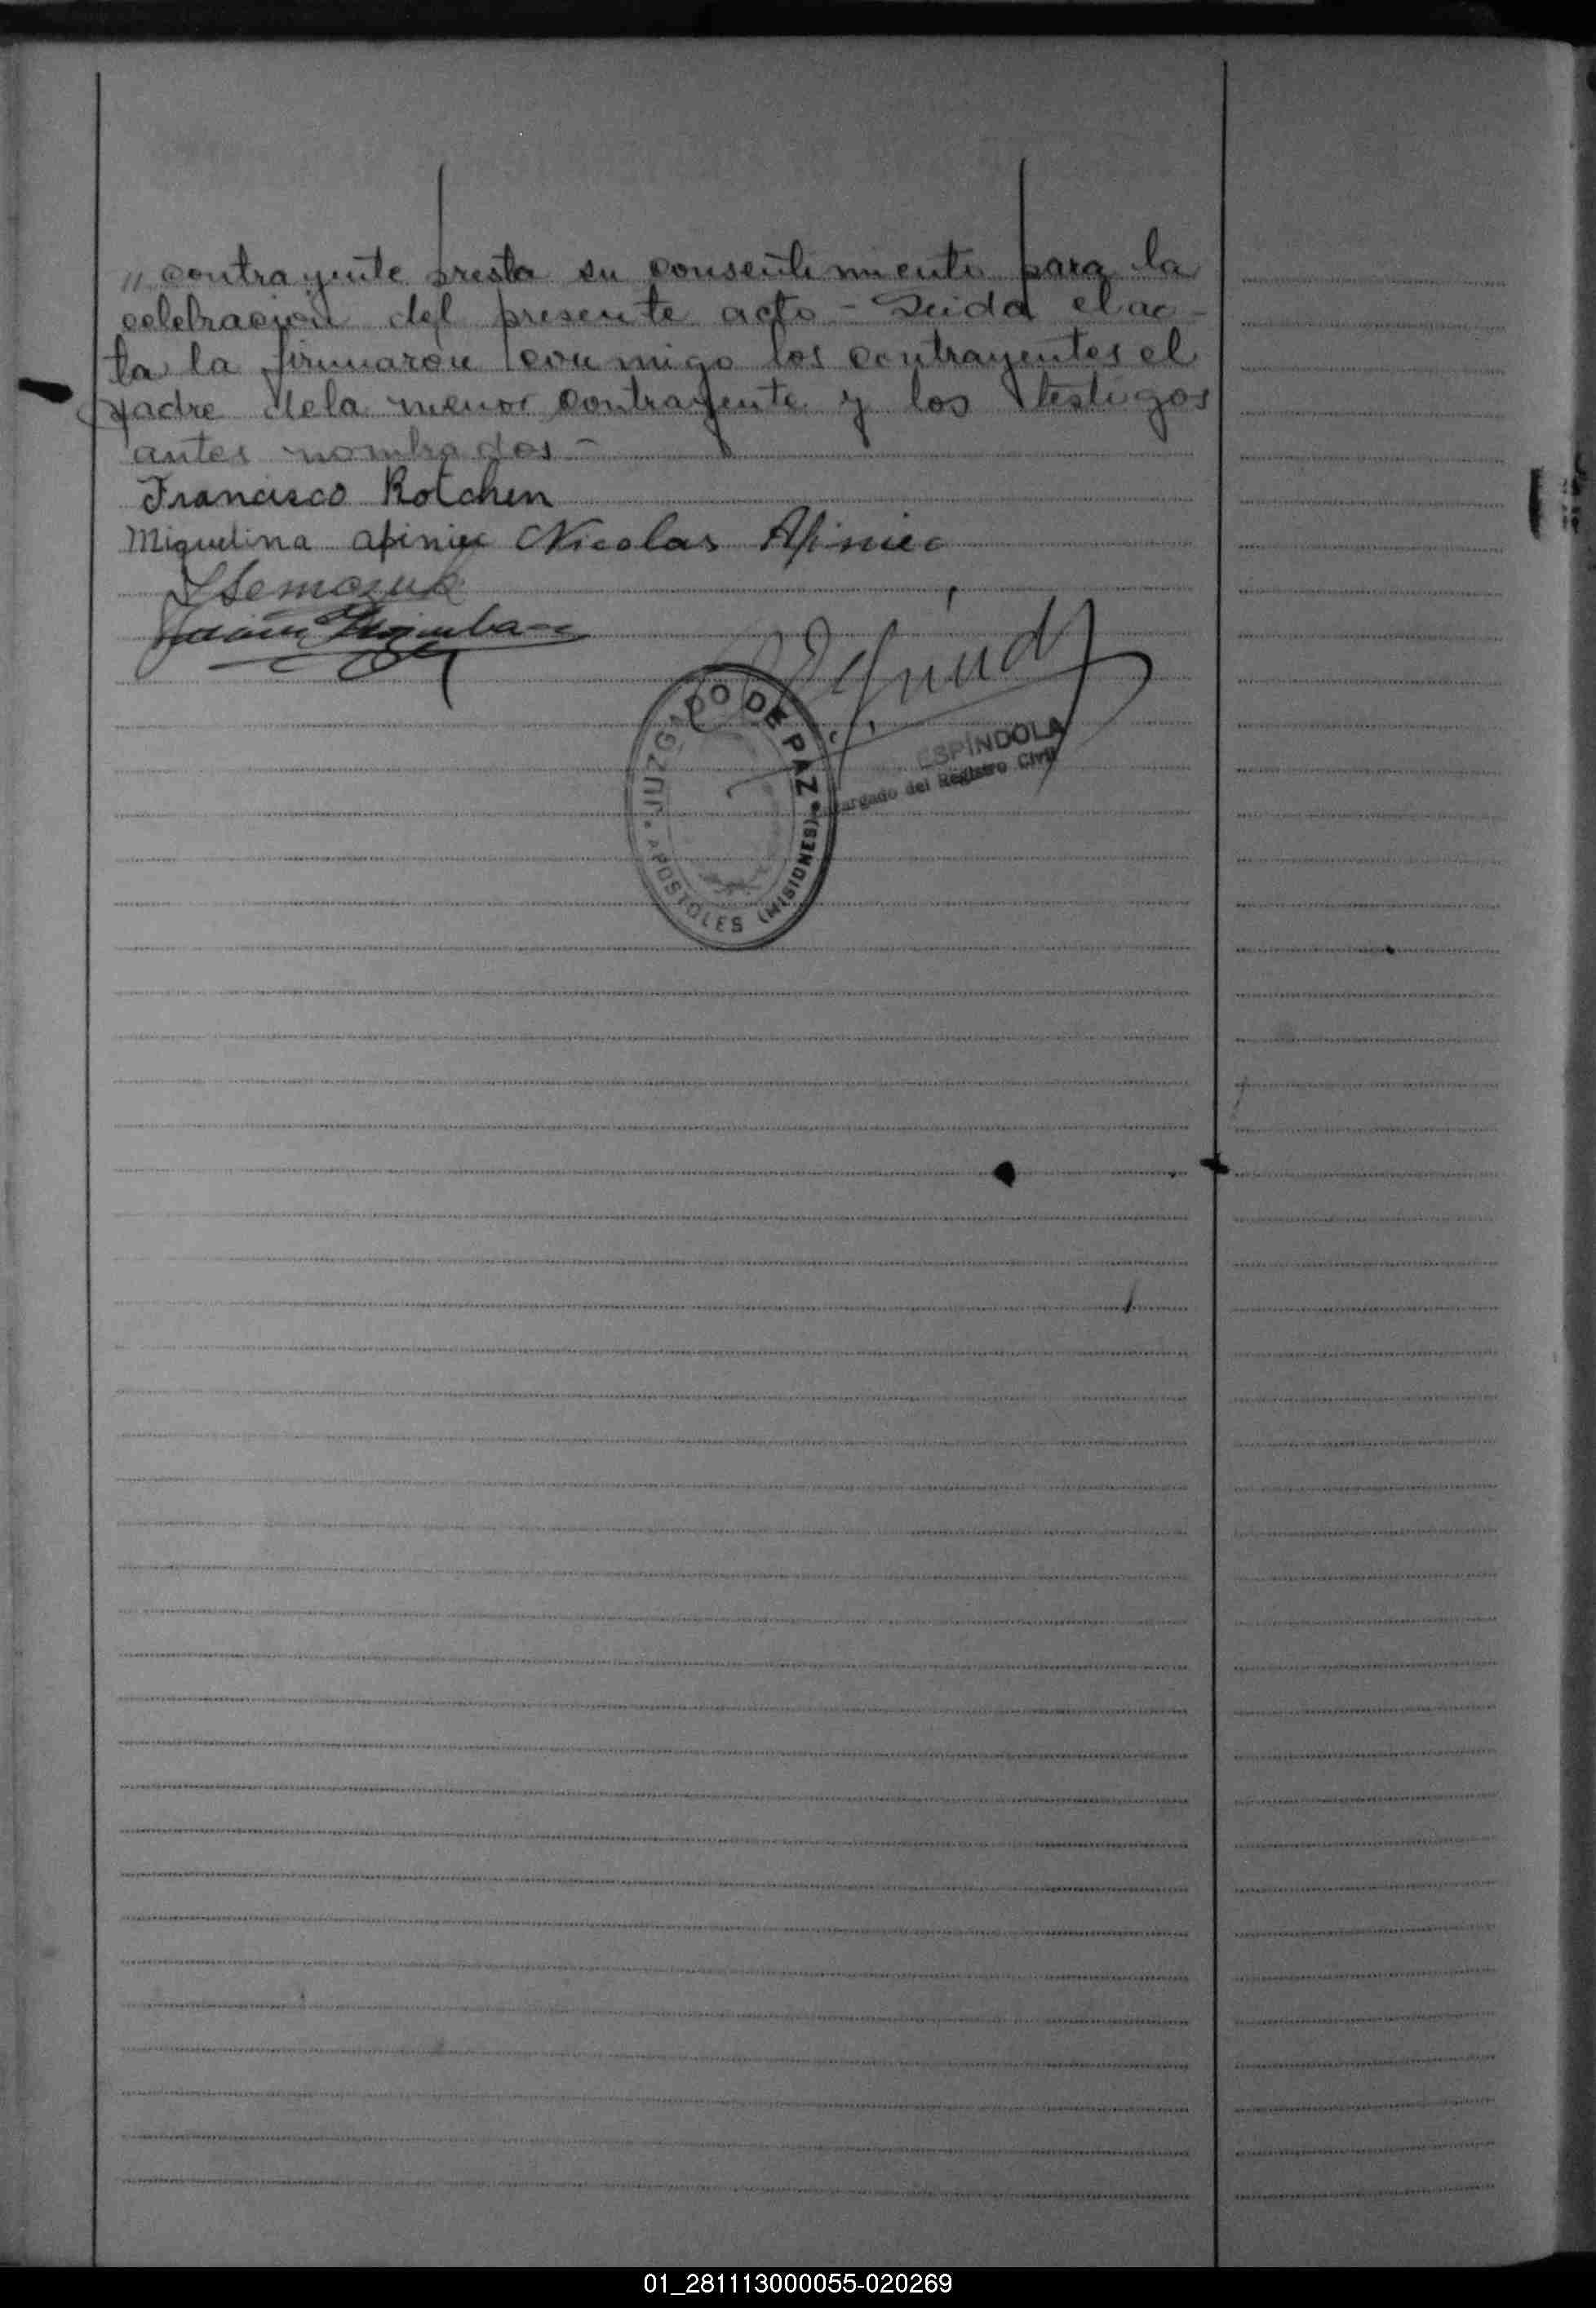 " contrayente presta su consentimiento para la
celebracion del presente acto - Leida el ac-
ta la firmaron conmigo los contrayentes el
padre dela menor contrayente y los testigos
antes nombrados -
Francisco Rotchen
Miguelina apiniec Nicolas Apiniec
JUZGADO DE PAZ
APOSTOLES (MISIONES)
ESPÍNDOLA
argado del Registro Civil
01_281113000055-020269